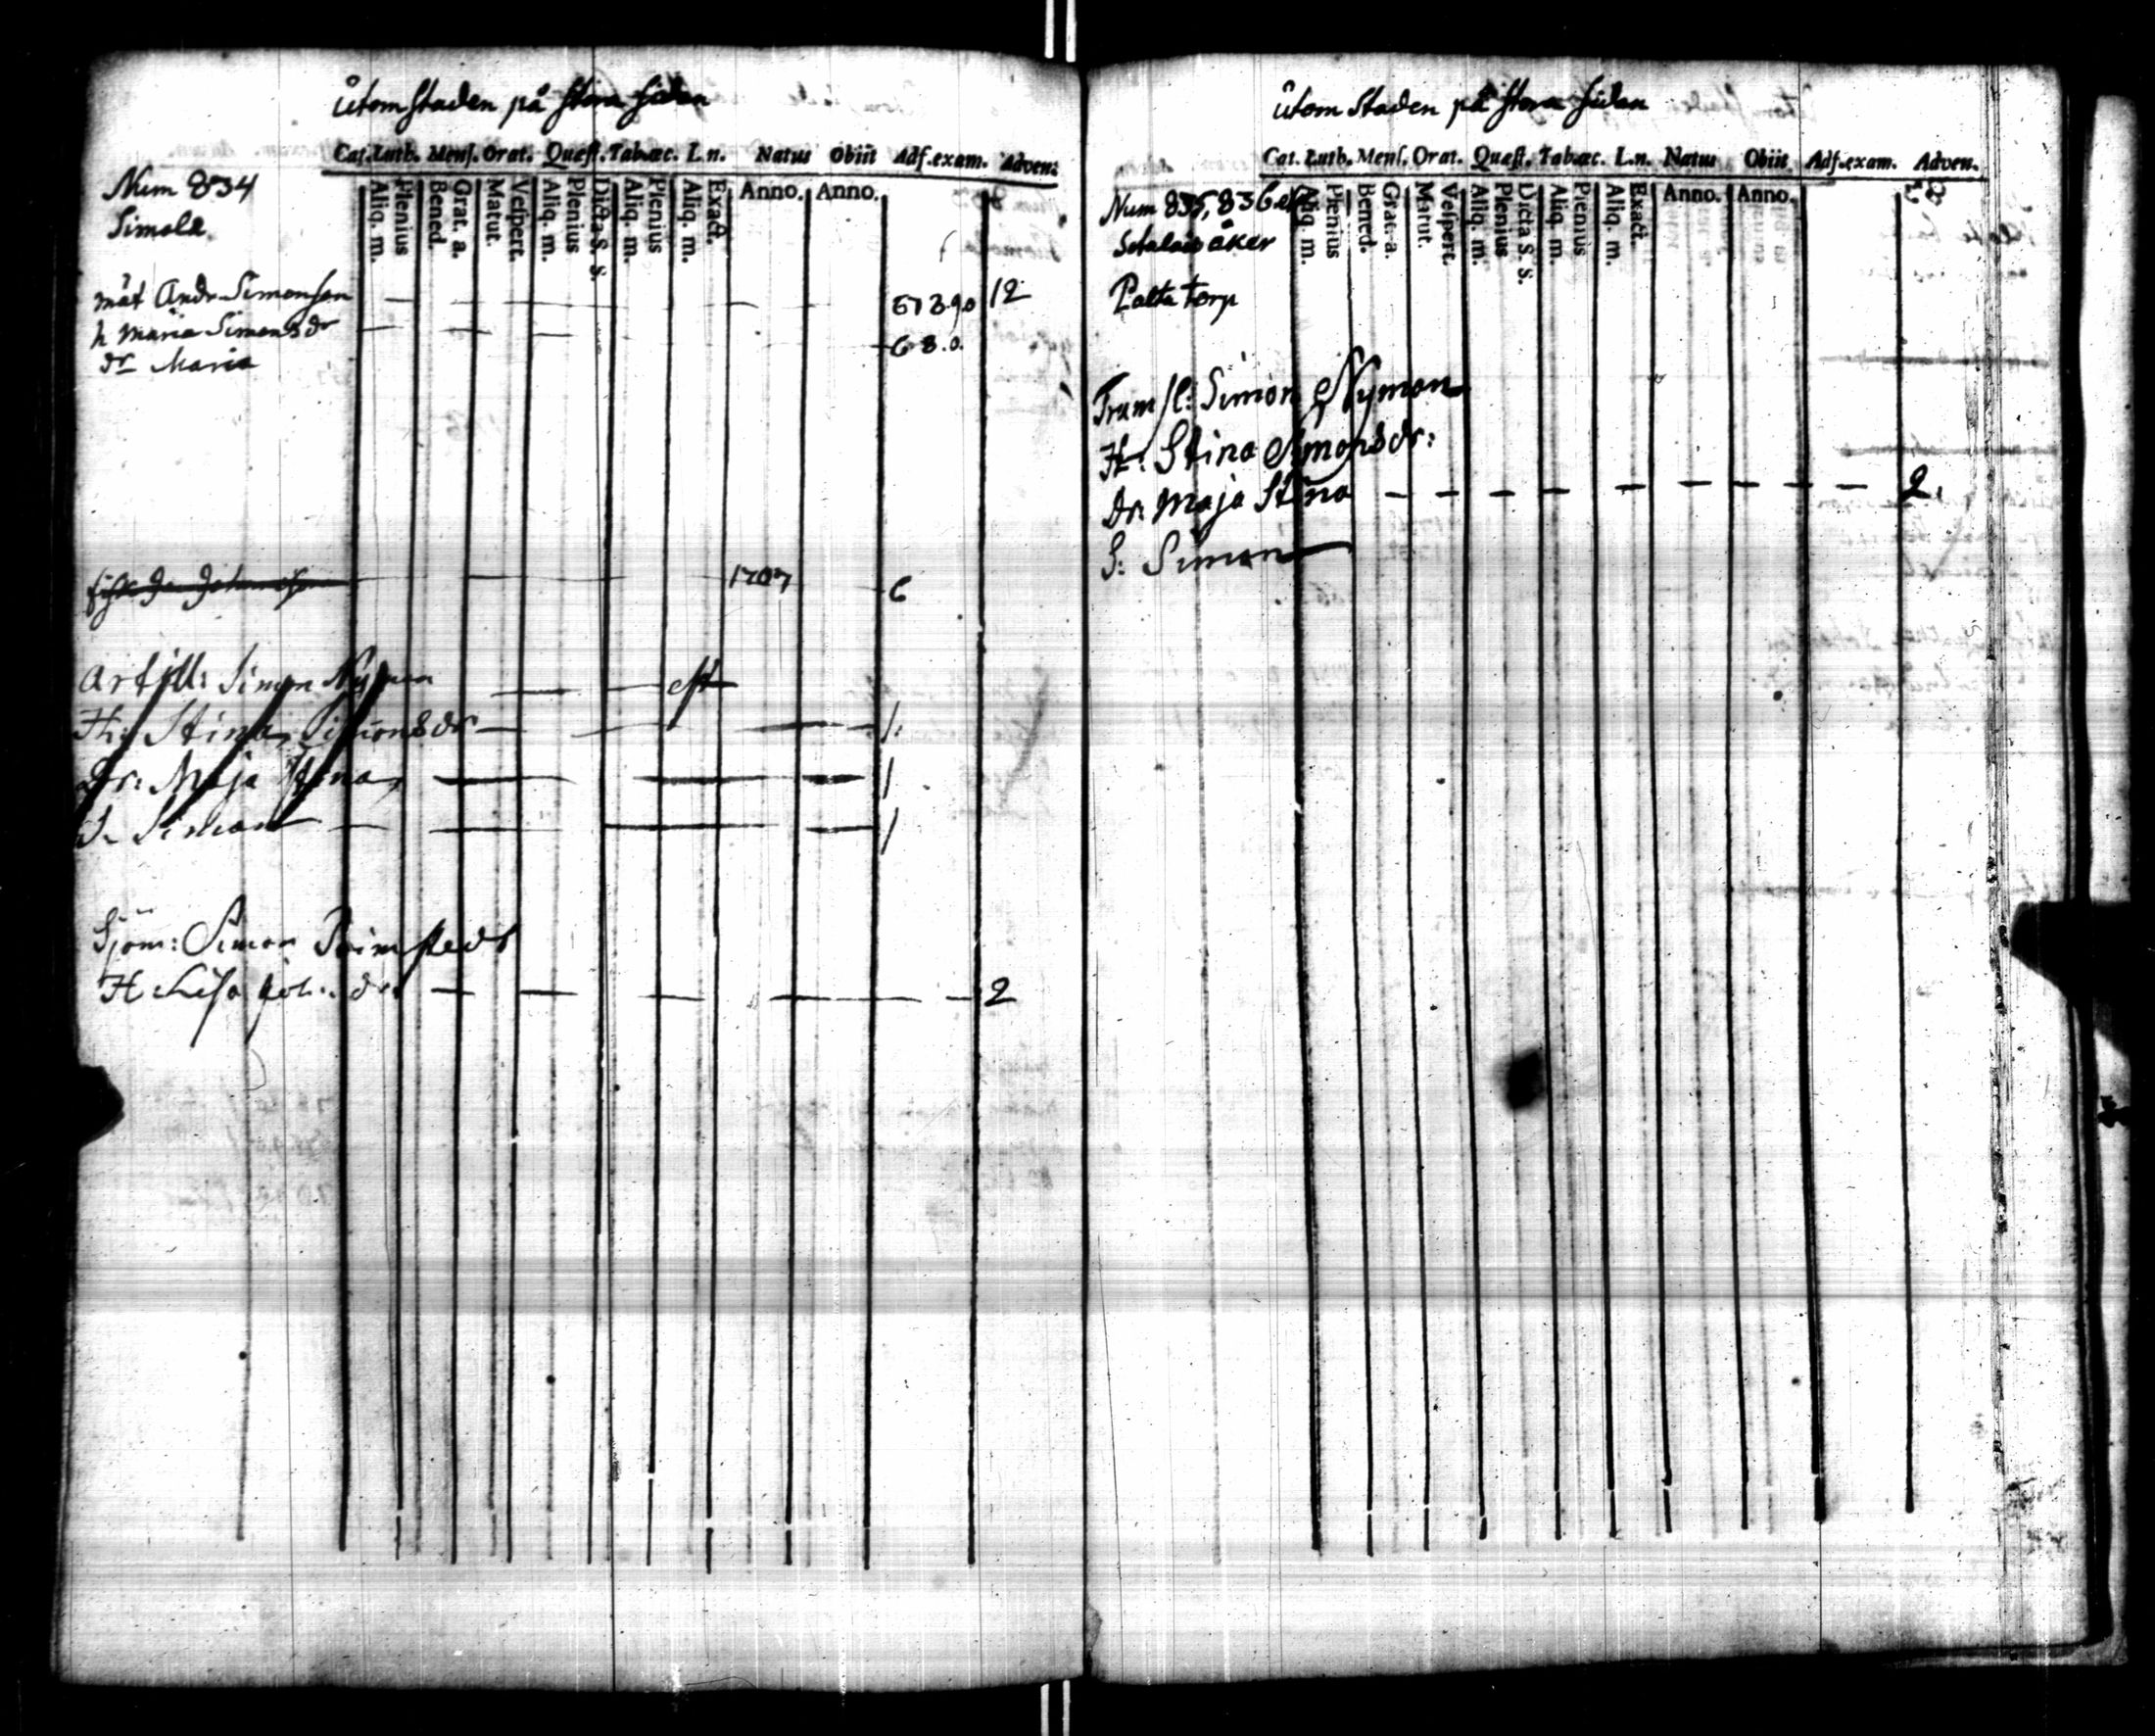 Utom staden på stora sidan
Cat. Luth. Mens. Orat. Quæst. Tab. œc. L. n. Natus Obiit Ads. exam. Adven.
Aliq. m. Plenius Bened. Grat. a. Matut. Vespert. Aliq. m. Plenius Dicta S. S. Aliq. m. Plenius Aliq. m. Exact. Anno. Anno.
Num 834
Simola
måt Andr Simonson 673.90 12
h Maria Simonsdr 68.0.
dr Maria
1707 6
Artill: Simon Nyman
H: Stina Simonsdr 1.
Dr: Maja Stina 1
S. Simon 1
Sjöm: Simon
H Lisa Joh: dr 2
Utom Staden på stora sidan
Cat. Luth. Mens. Orat. Quæst. Tab. œc. L. n. Natus Obiit Ads. exam. Adven.
Aliq. m. Plenius Bened. Grat. a. Matut. Vespert. Aliq. m. Plenius Dicta S. S. Aliq. m. Plenius Aliq. m. Exact. Anno. Anno.
Num 835, 836
åker
Palta torp
Simon Nyman
H: Stina Simonsdr:
Dr. Maja Stina 2.
S: Simon